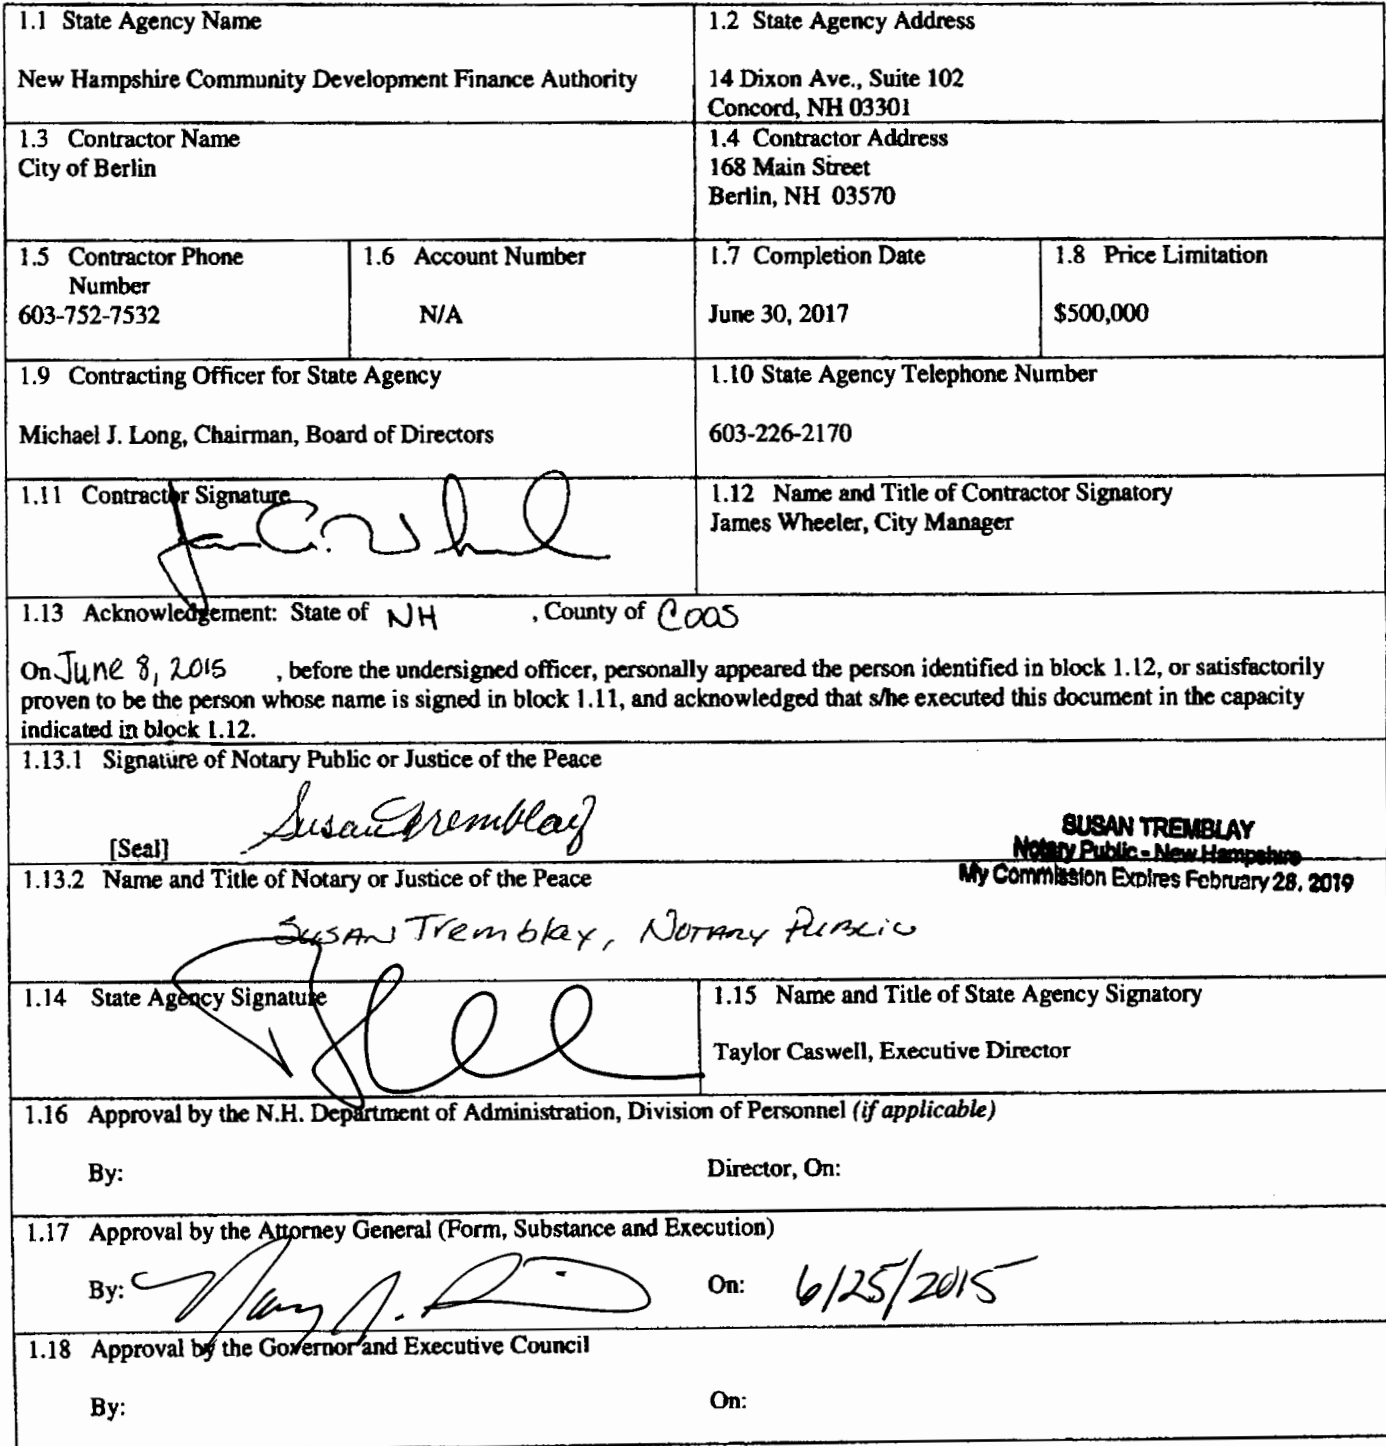 1.1 State Agency Name
New Hampshire Community Development Finance Authority
1.2 State Agency Address
14 Dixon Ave., Suite 102
Concord, NH 03301
1.3 Contractor Name
City of Berlin
1.4 Contractor Address
168 Main Street
Berlin, NH 03570
1.5 Contractor Phone
Number
603-752-7532
1.6 Account Number
N/A
1.7 Completion Date
June 30, 2017
1.8 Price Limitation
$500,000
1.9 Contracting Officer for State Agency
Michael J. Long, Chairman, Board of Directors
1.10 State Agency Telephone Number
603-226-2170
1.11 Contractor Signature
1.12 Name and Title of Contractor Signatory
James Wheeler, City Manager
1.13 Acknowledgement: State of NH , County of Coos
On June 8, 2015 , before the undersigned officer, personally appeared the person identified in block 1.12, or satisfactorily
proven to be the person whose name is signed in block 1.11, and acknowledged that s/he executed this document in the capacity
indicated in block 1.12.
1.13.1 Signature of Notary Public or Justice of the Peace
Susan Tremblay
[Seal]
SUSAN TREMBLAY
Notary Public - New Hampshire
My Commission Expires February 28, 2019
1.13.2 Name and Title of Notary or Justice of the Peace
Susan Tremblay, Notary Public
1.14 State Agency Signature
1.15 Name and Title of State Agency Signatory
Taylor Caswell, Executive Director
1.16 Approval by the N.H. Department of Administration, Division of Personnel (if applicable)
By:
Director, On:
1.17 Approval by the Attorney General (Form, Substance and Execution)
By:
On: 6/25/2015
1.18 Approval by the Governor and Executive Council
By:
On: